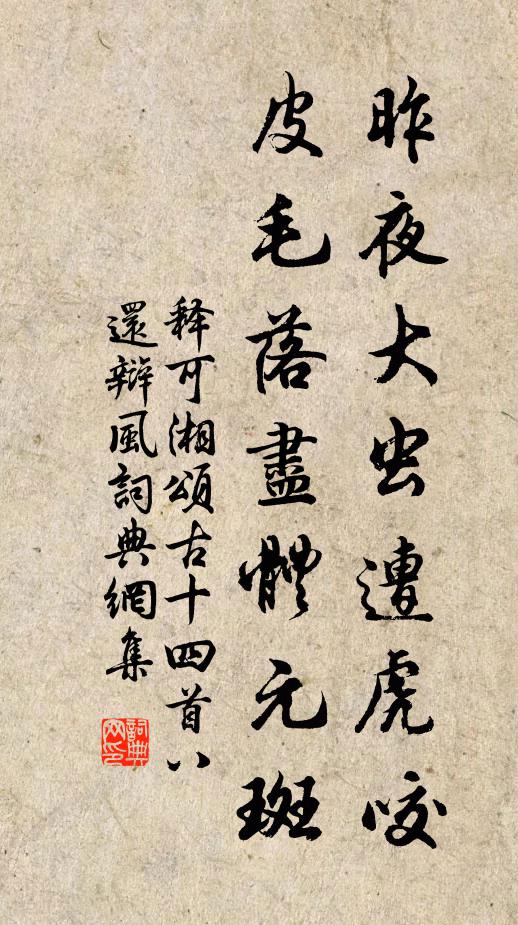 昨夜大虫遭虎咬
皮毛落盡體元斑
释可湘頌古十四首八
還辯風詞典網集
詞典网印